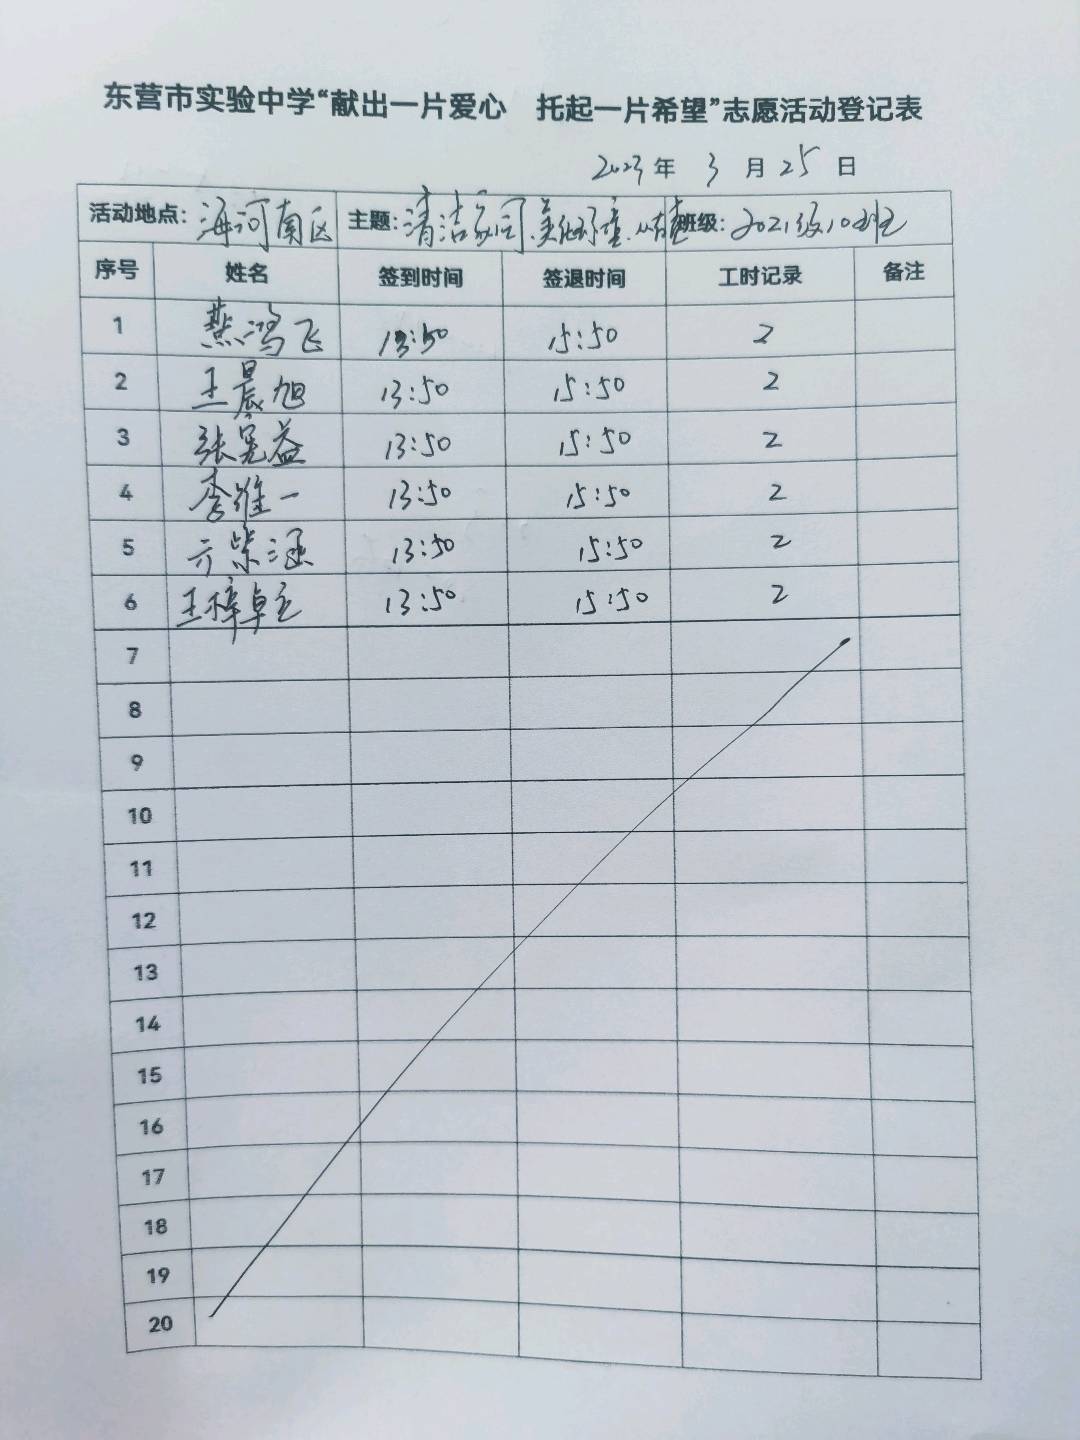 东营市实验中学“献出一片爱心 托起一片希望”志愿活动登记表
2023 年 3 月 25 日
活动地点: 海河南区 主题: 清洁家园、美化环 班级: 2021级10班
序号 姓名 签到时间 签退时间 工时记录 备注
1 燕鸿飞 13:50 15:50 2
2 王晨旭 13:50 15:50 2
3 张冕益 13:50 15:50 2
4 李维一 13:50 15:50 2
5 亓紫涵 13:50 15:50 2
6 王梓卓 13:50 15:50 2
7
8
9
10
11
12
13
14
15
16
17
18
19
20